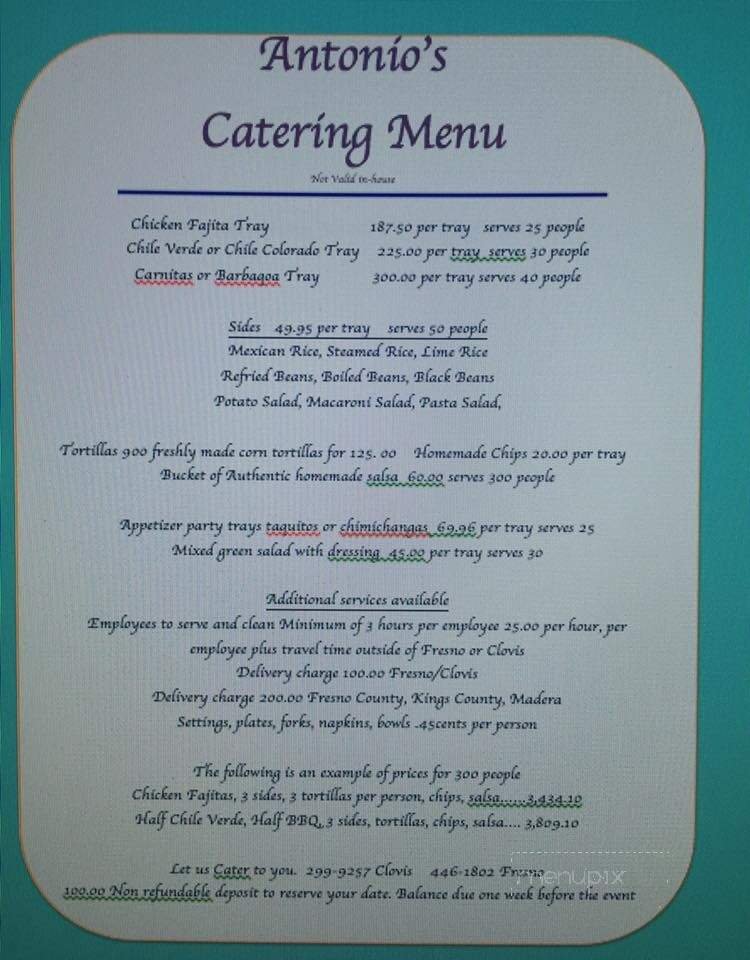 Antonio's
Catering Menu
Not Valid in-house
Chicken Fajita Tray 187.50 per tray serves 25 people
Chile Verde or Chile Colorado Tray 225.00 per tray serves 30 people
Carnitas or Barbagoa Tray 300.00 per tray serves 40 people
Sides 49.95 per tray serves 50 people
Mexican Rice, Steamed Rice, Lime Rice
Refried Beans, Boiled Beans, Black Beans
Potato Salad, Macaroni Salad, Pasta Salad,
Tortillas 900 freshly made corn tortillas for 125. 00 Homemade Chips 20.00 per tray
Bucket of Authentic homemade salsa 60.00 serves 300 people
Appetizer party trays taquitos or chimichangas 69.96 per tray serves 25
Mixed green salad with dressing 45.00 per tray serves 30
Additional services available
Employees to serve and clean Minimum of 3 hours per employee 25.00 per hour, per
employee plus travel time outside of Fresno or Clovis
Delivery charge 100.00 Fresno/Clovis
Delivery charge 200.00 Fresno County, Kings County, Madera
Settings, plates, forks, napkins, bowls .45cents per person
The following is an example of prices for 300 people
Chicken Fajitas, 3 sides, 3 tortillas per person, chips, salsa.....3,434.10
Half Chile Verde, Half BBQ, 3 sides, tortillas, chips, salsa.... 3,809.10
Let us Cater to you. 299-9257 Clovis 446-1802 Fresno
menupix
100.00 Non refundable deposit to reserve your date. Balance due one week before the event